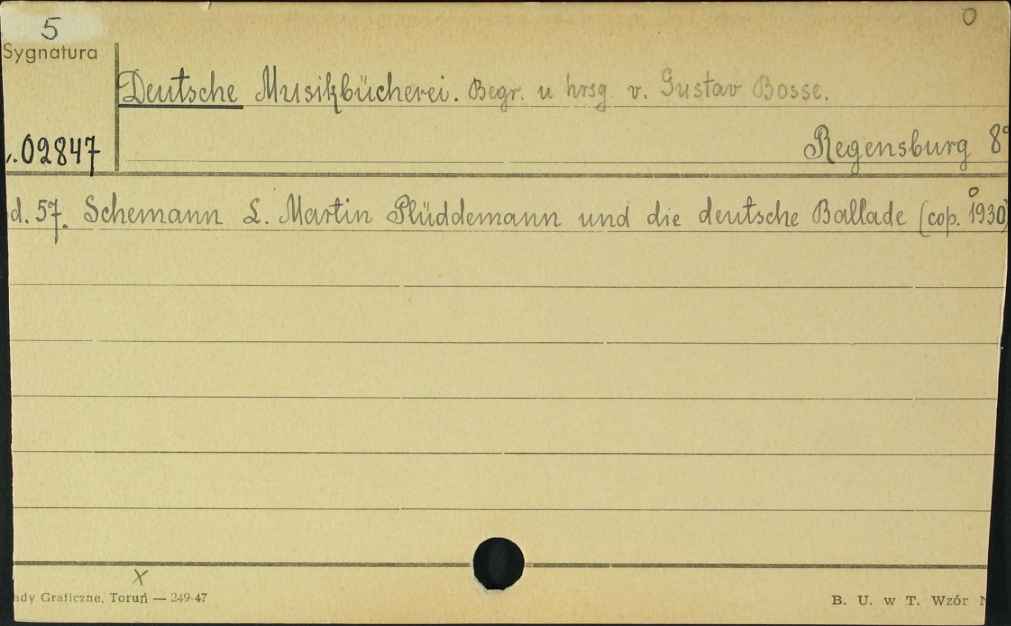 5
o
Sygnatura
Deutsche Musikbücherei. Begr. u hrsg v. Gustav Bosse.
.02847
Regensburg 8°
d. 57. Schemann L. Martin Plüddemann und die deutsche Ballade (cop. 1930)
x
ady Graficzne, Toruń — 249-47
B. U. w T. Wzór N